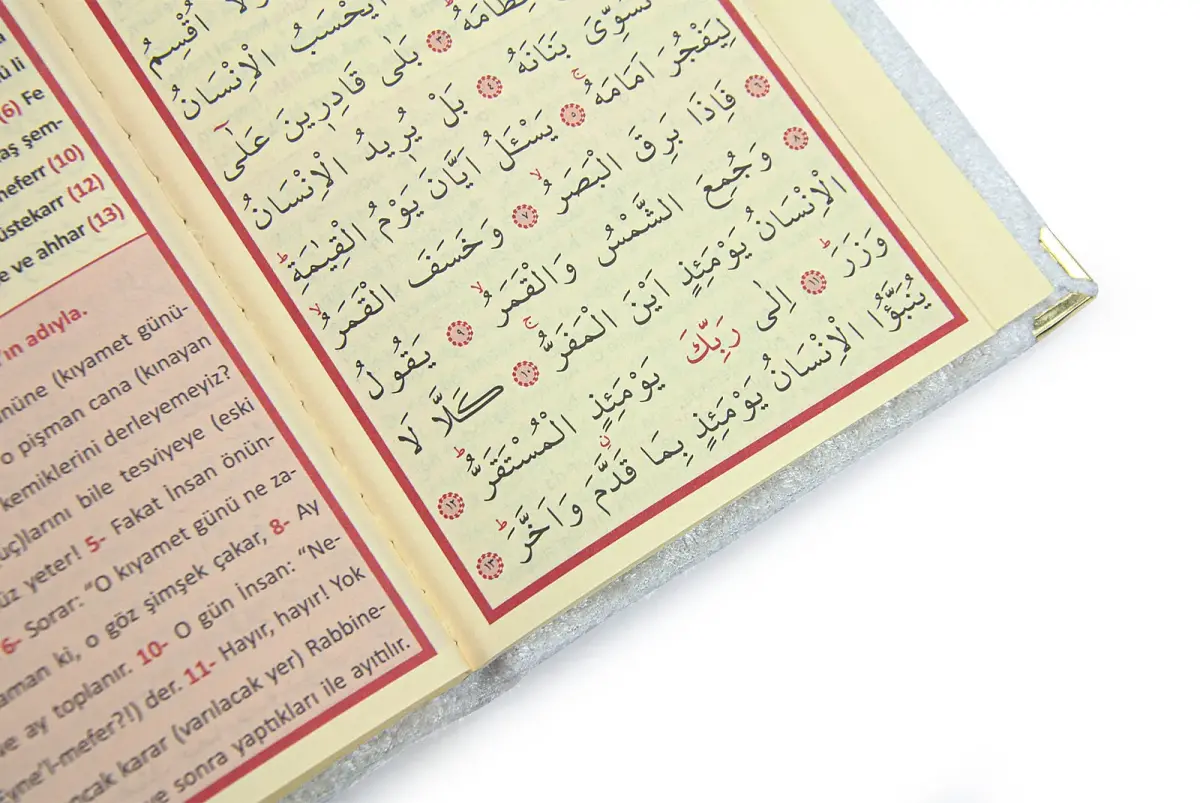 لَا اُقْسِمُ
اَيَحْسَبُ الْاِنْسَانُ
عِظَامَهُ ٣ بَلٰى قَادِرِينَ عَلٰٓى
نُسَوِّىَ بَنَانَهُ ٤ بَلْ يُرِيدُ الْاِنْسَانُ
لِيَفْجُرَ اَمَامَهُ ۚ ٥ يَسْـَٔلُ اَيَّانَ يَوْمُ الْقِيٰمَةِ ط
٦ فَاِذَا بَرِقَ الْبَصَرُ ۙ ٧ وَخَسَفَ الْقَمَرُ ۙ
٨ وَجُمِعَ الشَّمْسُ وَالْقَمَرُ ۙ ٩ يَقُولُ
الْاِنْسَانُ يَوْمَئِذٍ اَيْنَ الْمَفَرُّ ۚ ١٠ كَلَّا لَا
وَزَرَ ط ١١ اِلٰى رَبِّكَ يَوْمَئِذٍ الْمُسْتَقَرُّ ط ١٢
يُنَبَّؤُا الْاِنْسَانُ يَوْمَئِذٍ بِمَا قَدَّمَ وَاَخَّرَ ط ١٣
li
(6) Fe
şem-
meferr (10)
üstekarr (12)
e ve ahhar (13)
'ın adıyla.
nüne (kıyamet günü-
o pişman cana (kınayan
kemiklerini derleyemeyiz?
uç)larını bile tesviyeye (eski
üz yeter! 5- Fakat İnsan önün-
6- Sorar: “O kıyamet günü ne za-
aman ki, o göz şimşek çakar, 8- Ay
ve ay toplanır. 10- O gün İnsan: “Ne-
Eyne'l-mefer?!) der. 11- Hayır, hayır! Yok
ncak karar (varılacak yer) Rabbine-
ve sonra yaptıkları ile ayıtılır.